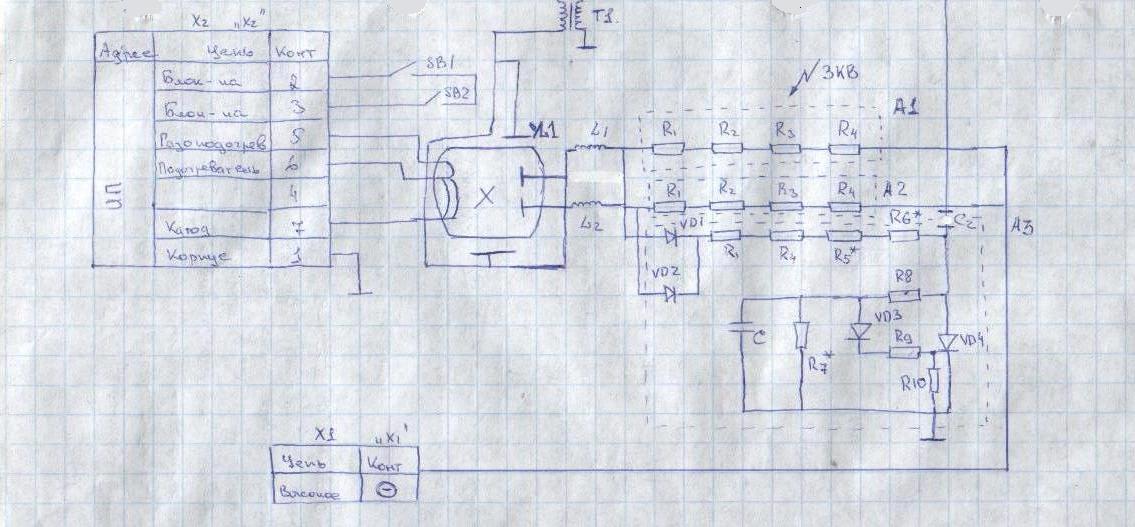 X2 „X2"
T1.
Адрес Цепь Конт
Блок-ка 2
SB1
Блок-ка 3
SB2
5
Подогреватель 6
ИП
4
Катод 7
Корпус 1
3КВ
A1
L1 R1 R2 R3 R4
X
R1 R2 R3 R4 A2
L2 VD1 R6* C2, A3
R1 R4 R5*
VD2
R8
C R7* VD3 R9 VD4
R10
X1 „X1"
Цепь Конт
Высокое ⊖